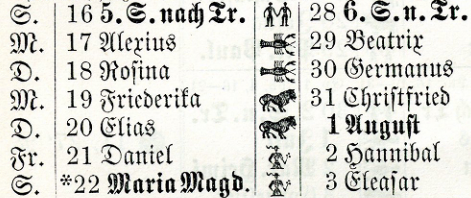 S. 16 5. S. nach Tr. 28 6. S. n. Tr.
M. 17 Alexius 29 Beatrix
D. 18 Rosina 30 Germanus
M. 19 Friederika 31 Christfried
D. 20 Elias 1 August
Fr. 21 Daniel 2 Hannibal
S. *22 Maria Magd. 3 Eleasar